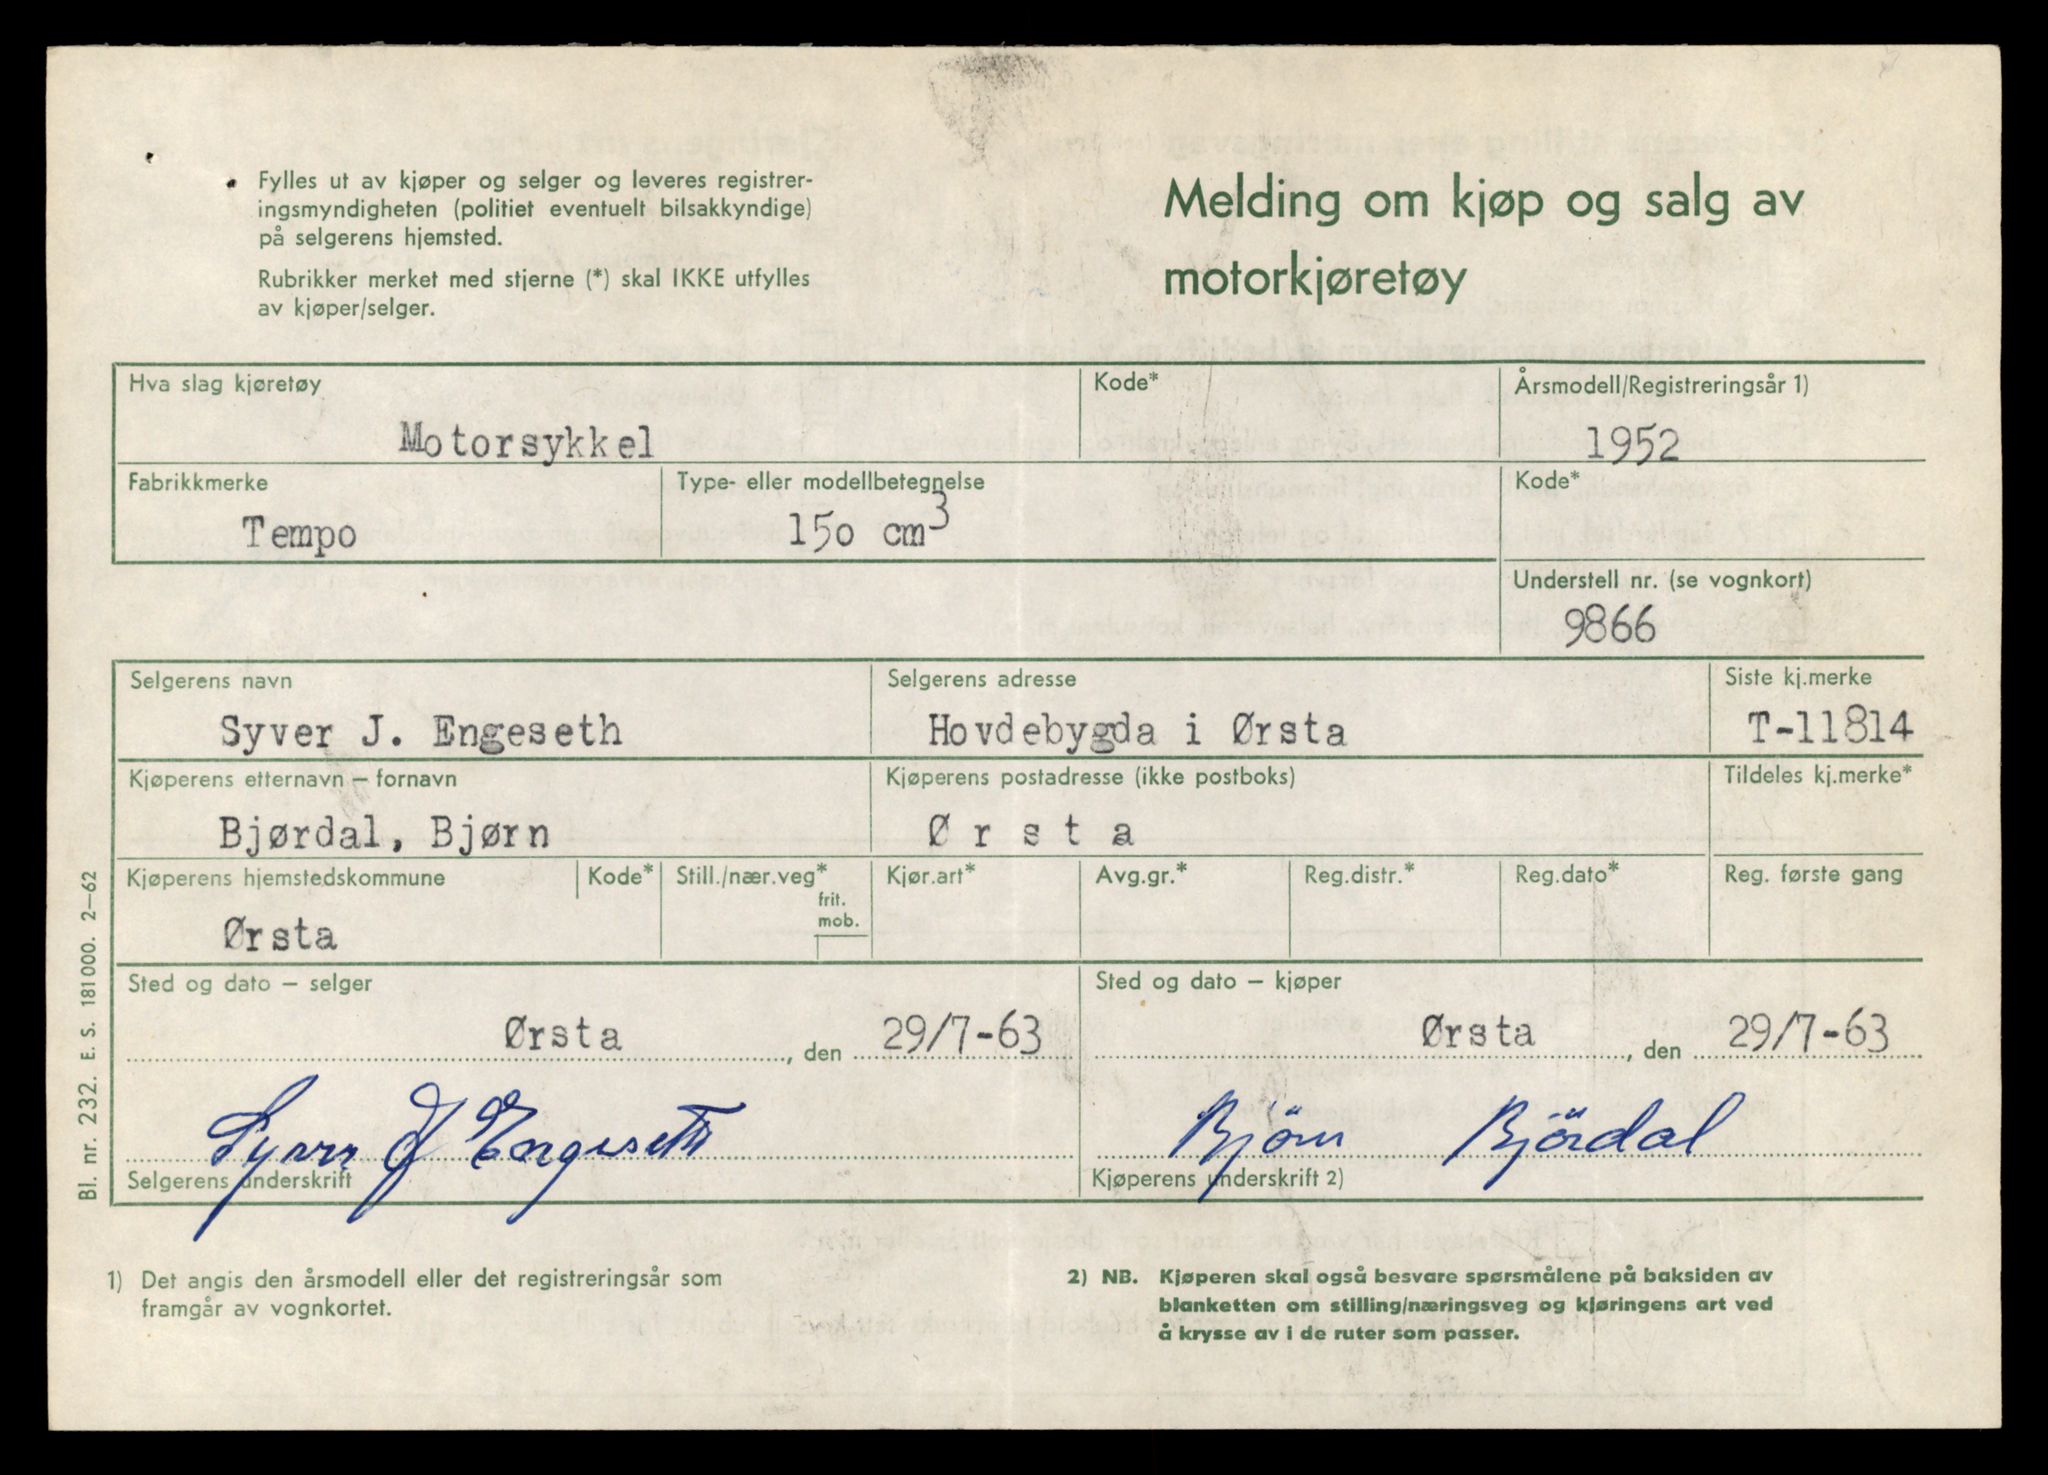 Fylles ut av kjøper og selger og leveres registrer-
ingsmyndigheten (politiet eventuelt bilsakkyndige)
på selgerens hjemsted.
Rubrikker merket med stjerne (*) skal IKKE utfylles
av kjøper/selger.
Melding om kjøp og salg av
motorkjøretøy
Hva slag kjøretøy
Motorsykkel
Kode*
Årsmodell/Registreringsår 1)
1952
Fabrikkmerke
Tempo
Type- eller modellbetegnelse
150 cm³
Kode*
Understell nr. (se vognkort)
9866
Selgerens navn
Syver J. Engeseth
Selgerens adresse
Hovdebygda i Ørsta
Siste kj.merke
T-11814
Kjøperens etternavn – fornavn
Bjørdal, Bjørn
Kjøperens postadresse (ikke postboks)
Ø r s t a
Tildeles kj.merke*
Kjøperens hjemstedskommune
Ørsta
Kode*
Still./nær.veg*
frit.
mob.
Kjør.art*
Avg.gr.*
Reg.distr.*
Reg.dato*
Reg. første gang
Sted og dato – selger
Ørsta, den 29/7-63
Syver J Engeseth
Selgerens underskrift
Sted og dato – kjøper
Ørsta, den 29/7-63
Björn Björdal
Kjøperens underskrift 2)
Bl. nr. 232. E. S. 181 000. 2–62
1) Det angis den årsmodell eller det registreringsår som
framgår av vognkortet.
2) NB. Kjøperen skal også besvare spørsmålene på baksiden av
blanketten om stilling/næringsveg og kjøringens art ved
å krysse av i de ruter som passer.